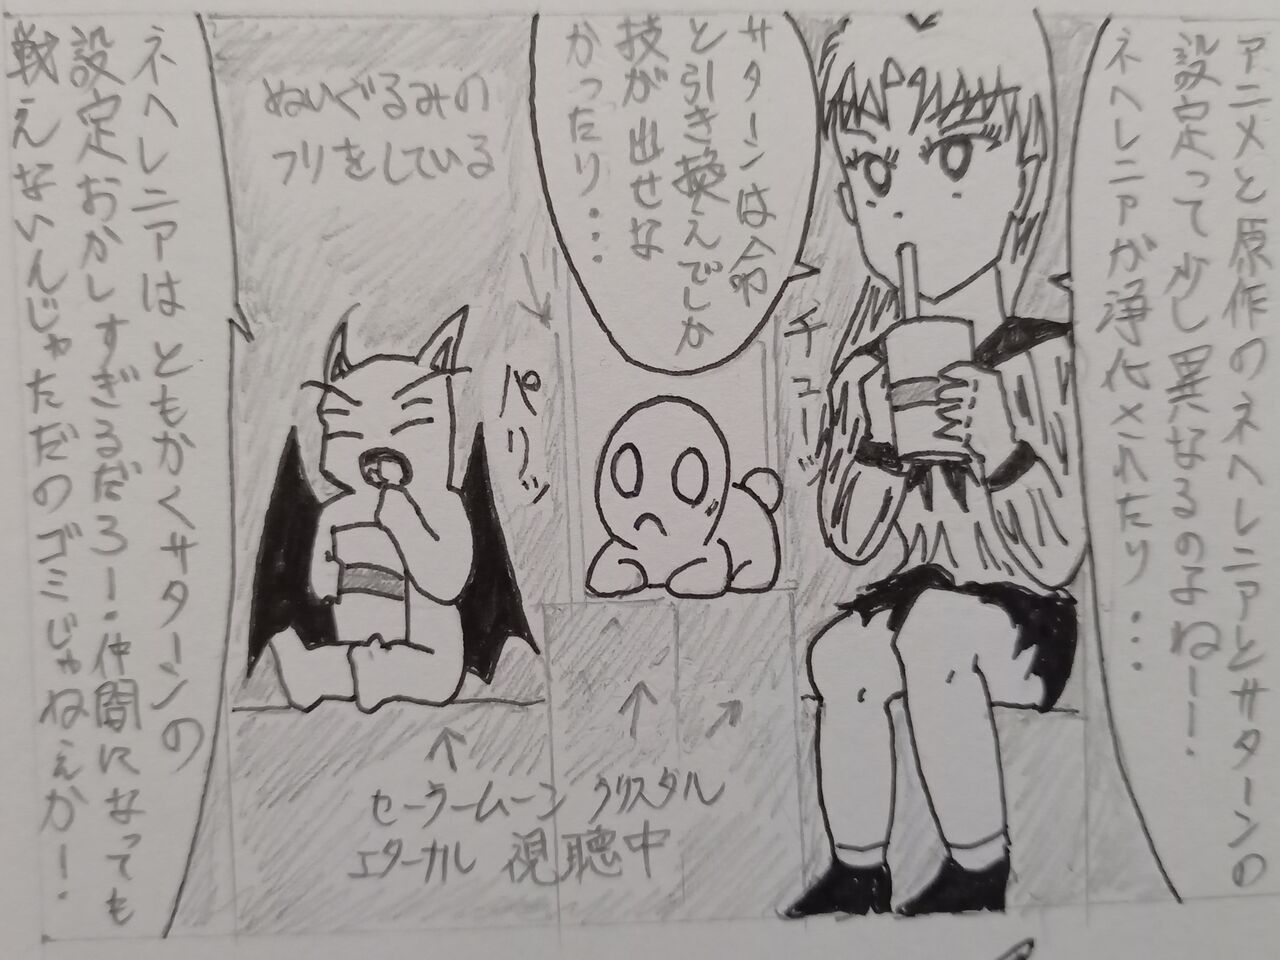 アニメと原作のネヘレニアとサターンの
設定って少し異なるのよねー！
ネヘレニアが浄化されたり・・・
サターンは命
と引き換えでしか
技が出せな
かったり・・・
チューッ
ぬいぐるみの
フリをしている
パリッ
ネヘレニアはともかくサターンの
設定おかしすぎるだろー！仲間になっても
戦えないんじゃただのゴミじゃねぇか！
セーラームーン クリスタル
エターナル 視聴中